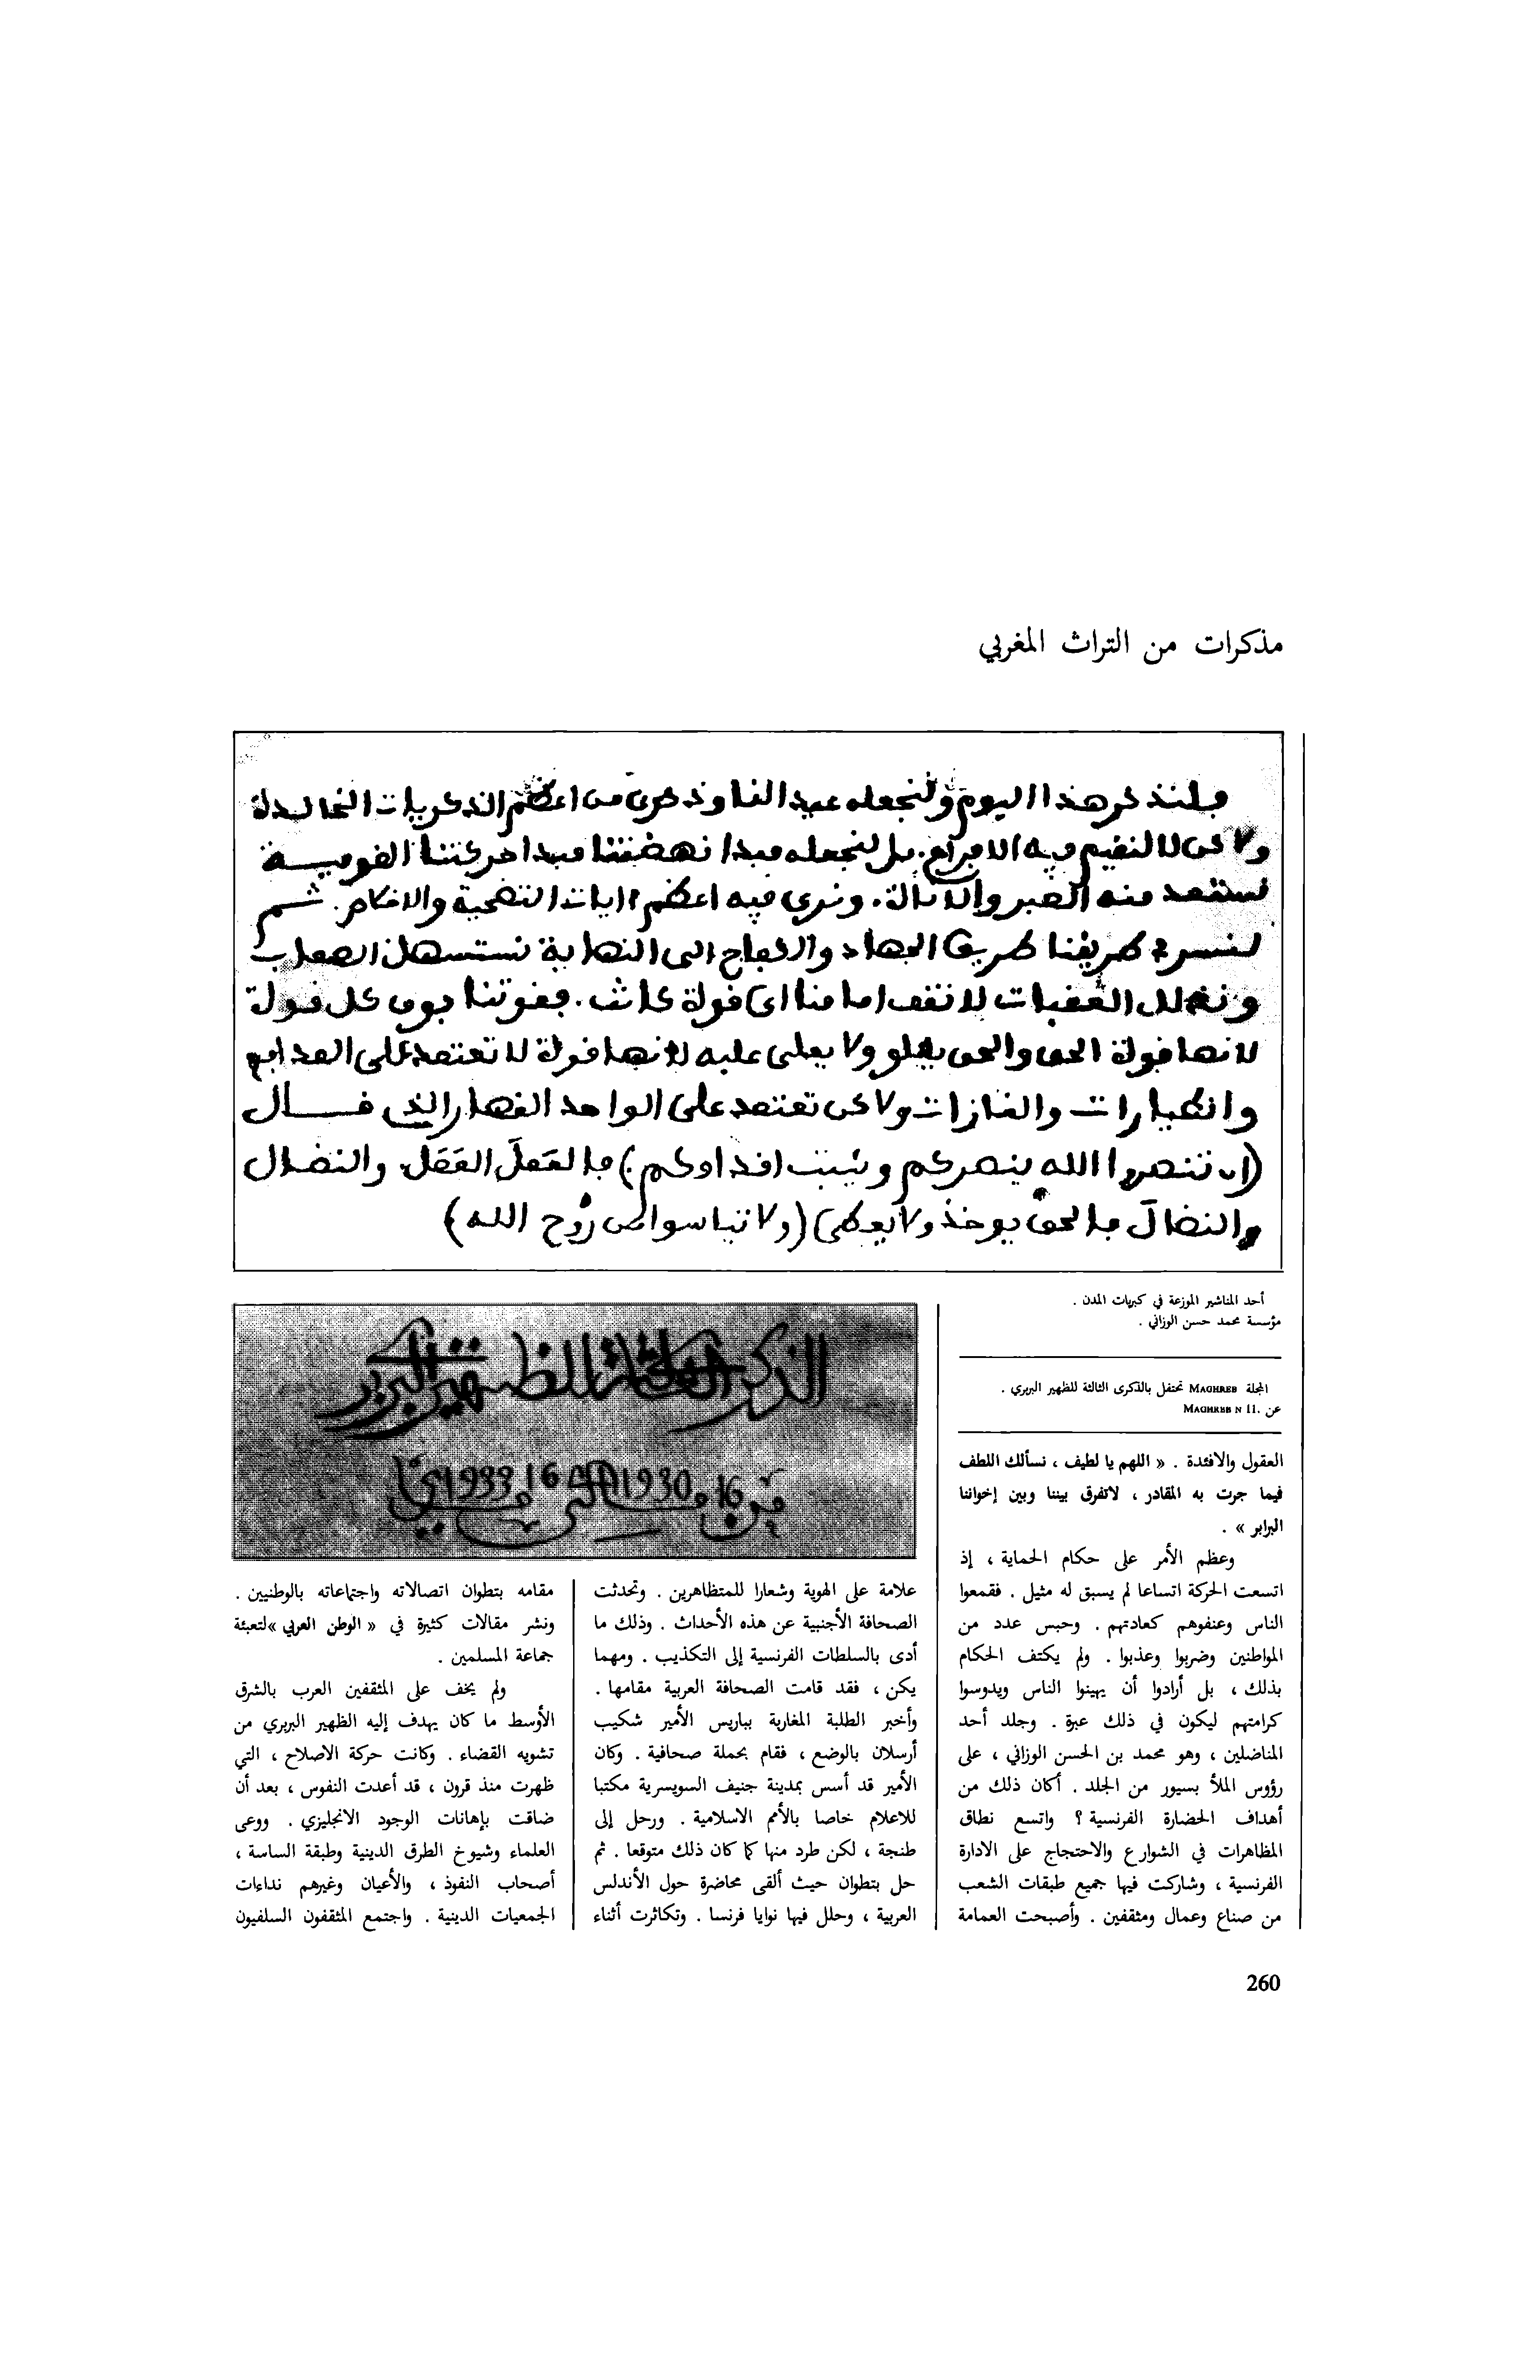 مذكرات من التراث المغربي
فلنذكر هذا اليوم ولنجعله عيدا لنا وذكرى من اعظم الذكريات الخالدة
ولاكن لا لنقيم فيه الافراح. بل لنجعله مبدا نهضتنا مبدا حركتنا القومية
نستمد منه الصبر و. ونرى فيه اعظم ايات التضحية والاقدام. ثم
لنسر في طريقنا طريق الجهاد والكفاح الى النهاية نستسهل الصعاب
ونذلل العقبات لا تقف امامنا اي قوة كانت. فقوتنا فوق كل قوة
لانها قوة الحق والحق يعلو ولا يعلى عليه لانها قوة لا تعتمد على المدافع
والطيارات والغازات ولاكن تعتمد على الواحد القهار الذي قال
(ان تنصروا الله ينصركم ويثبت اقدامكم) فالعمل العمل والنضال
والنضال فالحق يوخذ ولا يعطى (ولا تياسوا من روح الله)
أحد المناشير الموزعة في كبريات المدن .
مؤسسة محمد حسن الوزاني .
المجلة MAGHREB تحتفل بالذكرى الثالثة للظهير البربري .
عن MAGHREB N 11.
الذكرى الثالثة للظهير البربري
من 16 مـ 1930 الى 16 مـ 1933
العقول والافئدة . « اللهم يا لطيف ، نسألك اللطف
فيما جرت به المقادر ، لاتفرق بيننا وبين إخواننا
البرابر » .
وعظم الأمر على حكام الحماية ، إذ
اتسعت الحركة اتساعا لم يسبق له مثيل . فقمعوا
الناس وعنفوهم كعادتهم . وحبس عدد من
المواطنين وضربوا وعذبوا . ولم يكتف الحكام
بذلك ، بل أرادوا أن يهينوا الناس ويدوسوا
كرامتهم ليكون في ذلك عبرة . وجلد أحد
المناضلين ، وهو محمد بن الحسن الوزاني ، على
رؤوس الملأ بسيور من الجلد . أكان ذلك من
أهداف الحضارة الفرنسية ؟ واتسع نطاق
المظاهرات في الشوارع والاحتجاج على الادارة
الفرنسية ، وشاركت فيها جميع طبقات الشعب
من صناع وعمال ومثقفين . وأصبحت العمامة
علامة على الهوية وشعارا للمتظاهرين . وتحدثت
الصحافة الأجنبية عن هذه الأحداث . وذلك ما
أدى بالسلطات الفرنسية إلى التكذيب . ومهما
يكن ، فقد قامت الصحافة العربية مقامها .
وأخبر الطلبة المغاربة بباريس الأمير شكيب
أرسلان بالوضع ، فقام بحملة صحافية . وكان
الأمير قد أسس بمدينة جنيف السويسرية مكتبا
للاعلام خاصا بالأمم الاسلامية . ورحل إلى
طنجة ، لكن طرد منها كما كان ذلك متوقعا . ثم
حل بتطوان حيث ألقى محاضرة حول الأندلس
العربية ، وحلل فيها نوايا فرنسا . وتكاثرت أثناء
مقامه بتطوان اتصالاته واجتماعاته بالوطنيين .
ونشر مقالات كثيرة في « الوطن العربي »لتعبئة
جماعة المسلمين .
ولم يخف على المثقفين العرب بالشرق
الأوسط ما كان يهدف إليه الظهير البربري من
تشويه القضاء . وكانت حركة الاصلاح ، التي
ظهرت منذ قرون ، قد أعدت النفوس ، بعد أن
ضاقت بإهانات الوجود الانجليزي . ووعى
العلماء وشيوخ الطرق الدينية وطبقة الساسة ،
أصحاب النفوذ ، والأعيان وغيرهم نداءات
الجمعيات الدينية . واجتمع المثقفون السلفيون
260